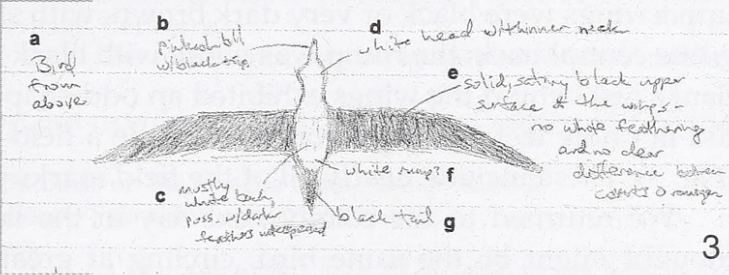 a
Bird
from
above
b
pinkish bill
w/black tip
d
white head w/thinner neck
e
solid, satiny black upper
surface of the wings -
no white feathering
and no clear
difference between
coverts &
white rump?
f
c
mostly
white back,
poss. w/darker
feathers interspersed
black tail
g
3